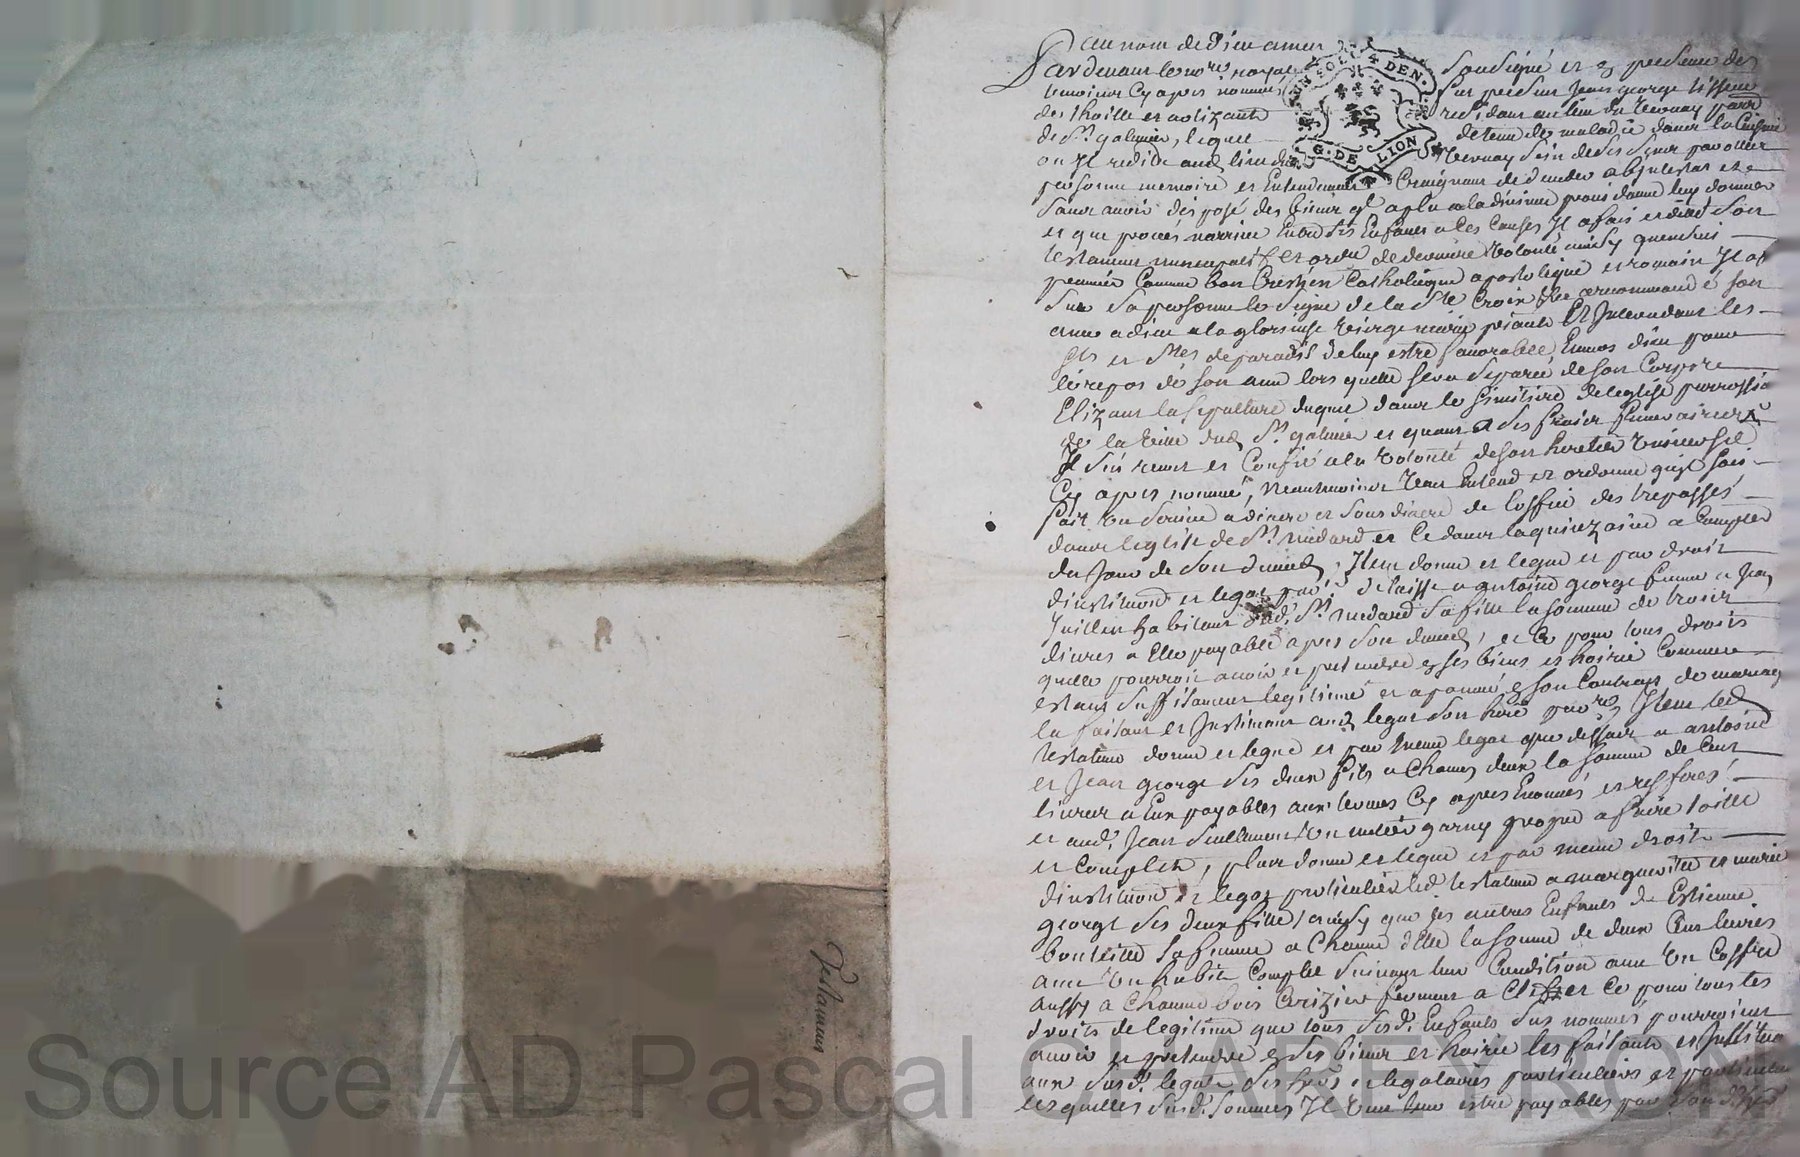 Au nom de Dieu amen
Pardevant le nore royal soubsigné et en presence des
temoins cy apres nommés fut present Jean george tisseur
de thoille et resident au lieu du Vernay parr
de St galmier, lequel detenu de maladie dans la Cuisine
ou Il reside aud lieu du Vernay sain de ses sens parolles
memoire et Entendement Craignant de deceder abintestat et
sans avoir disposé des biens qu'il a plu a la divine providance luy donner
et que procés narrive Entre ses Enfants a ces Causes Il a fait et dicté son
testament nuncupatif et ordre de derniere Volonté ainsy quensuit
premier Comme bon Crestien Catholique apostolique et romain Il a f
sur sa personne le signe de la Ste Croix recommandé son
ame a dieu a la glorieuse Vierge marie priant Et Intercedant les
Sts et Stes de paradis de luy estre favorable Envers dieu pour
le repos de son ame lors quelle sera separée de son Corps
Elizant sa sepulture dans le simitiere de leglise parrossia
de la Ville dud St galmier et quant a ses fraix funeraires
Il sen remet et Confie a la Volonté de son heretier Universel
Cy apres nommé, neantmoins Veut Entend et ordonne quil soit
fait Un service a diacre et sous diacre de loffice des trepassés
dans leglise de St medard et Ce dans la quinzaine a Compter
du jour de son deced, Item donne et legue et par droit
dinstitution et legat delaisse a antoinette george femme a Jean
Juillien habitant dud. St medard sa fille la somme de trois
livres a Elle payable apres son deced, et Ce pour tous droits
quelle pourroit avoir et pretendre en ses biens et hoirie Comme
estant suffisament legitimé et apanné en son Contrat de mariage
la faisant et Instituant aud. legat son here par.re, Item led
testateur donne et legue et par meme legat que dessus a antoine
et Jean george ses deux fils a Chacun deux la somme de Cent
livres a Eux payables aux termes Cy apres Enoncés et
et aud. Jean seullement Un metier garny propre a faire toille
et Complet, plus donne et legue et par meme droit
dinstitution et legat particulier led testateur a margueritte et marie
george ses deux filles, ainsy que ses autres Enfants de Estienne
sa femme a Chacune delle la somme de deux Cent livres
avec Un habit Complet suivant leur Condition avec Un Coffre
aussy a Chacune bois Cerizier fermant a Clef et Ce pour tous les
droits de legitime que tous sesd. Enfants sus nommés pourroient
avoir et pretendre en ses biens et hoirie les faisant et Institua
aux susd. legats ses hers et legataires particuliers et
les quelles susd. sommes Il Veut leur estre payables par son d. her
Testament
Source AD Pascal CHAREYRON
G. DE LION